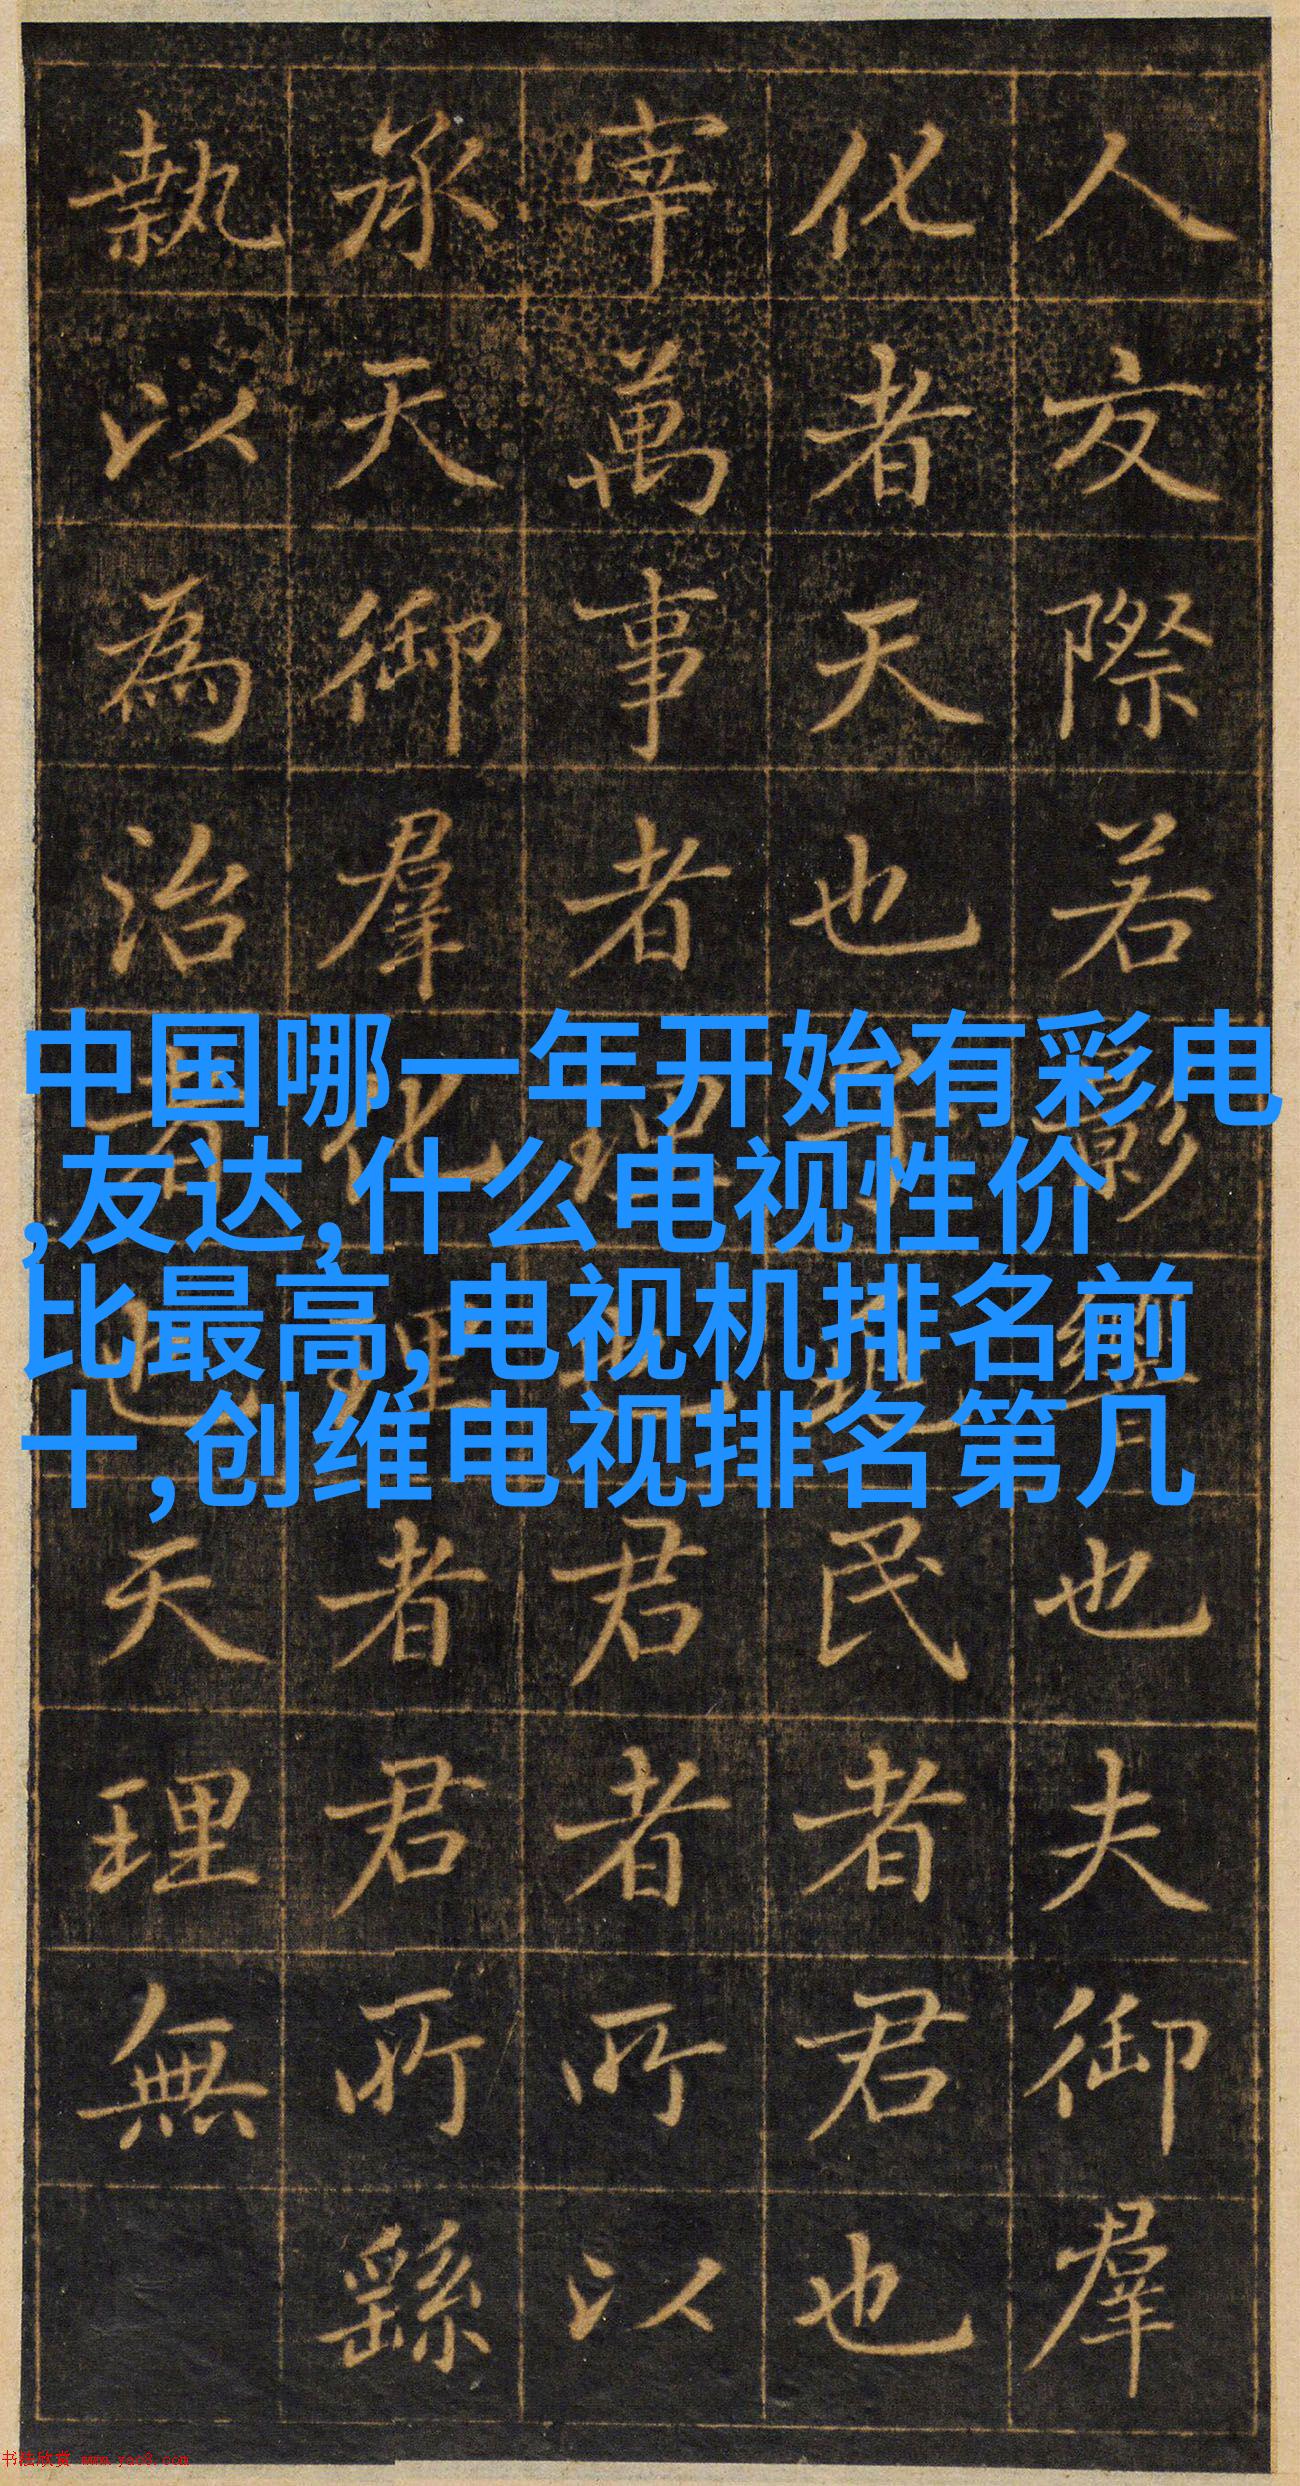 人交際若影響也夫御羣
化者天也理民者君也
宰萬事者理也君者所以
承天御羣化理者君所繇
執以為治者也天理無
中国哪一年开始有彩电
,友达,什么电视性价
比最高,电视机排名前
十,创维电视排名第几
书法欣赏 www.yac8.com